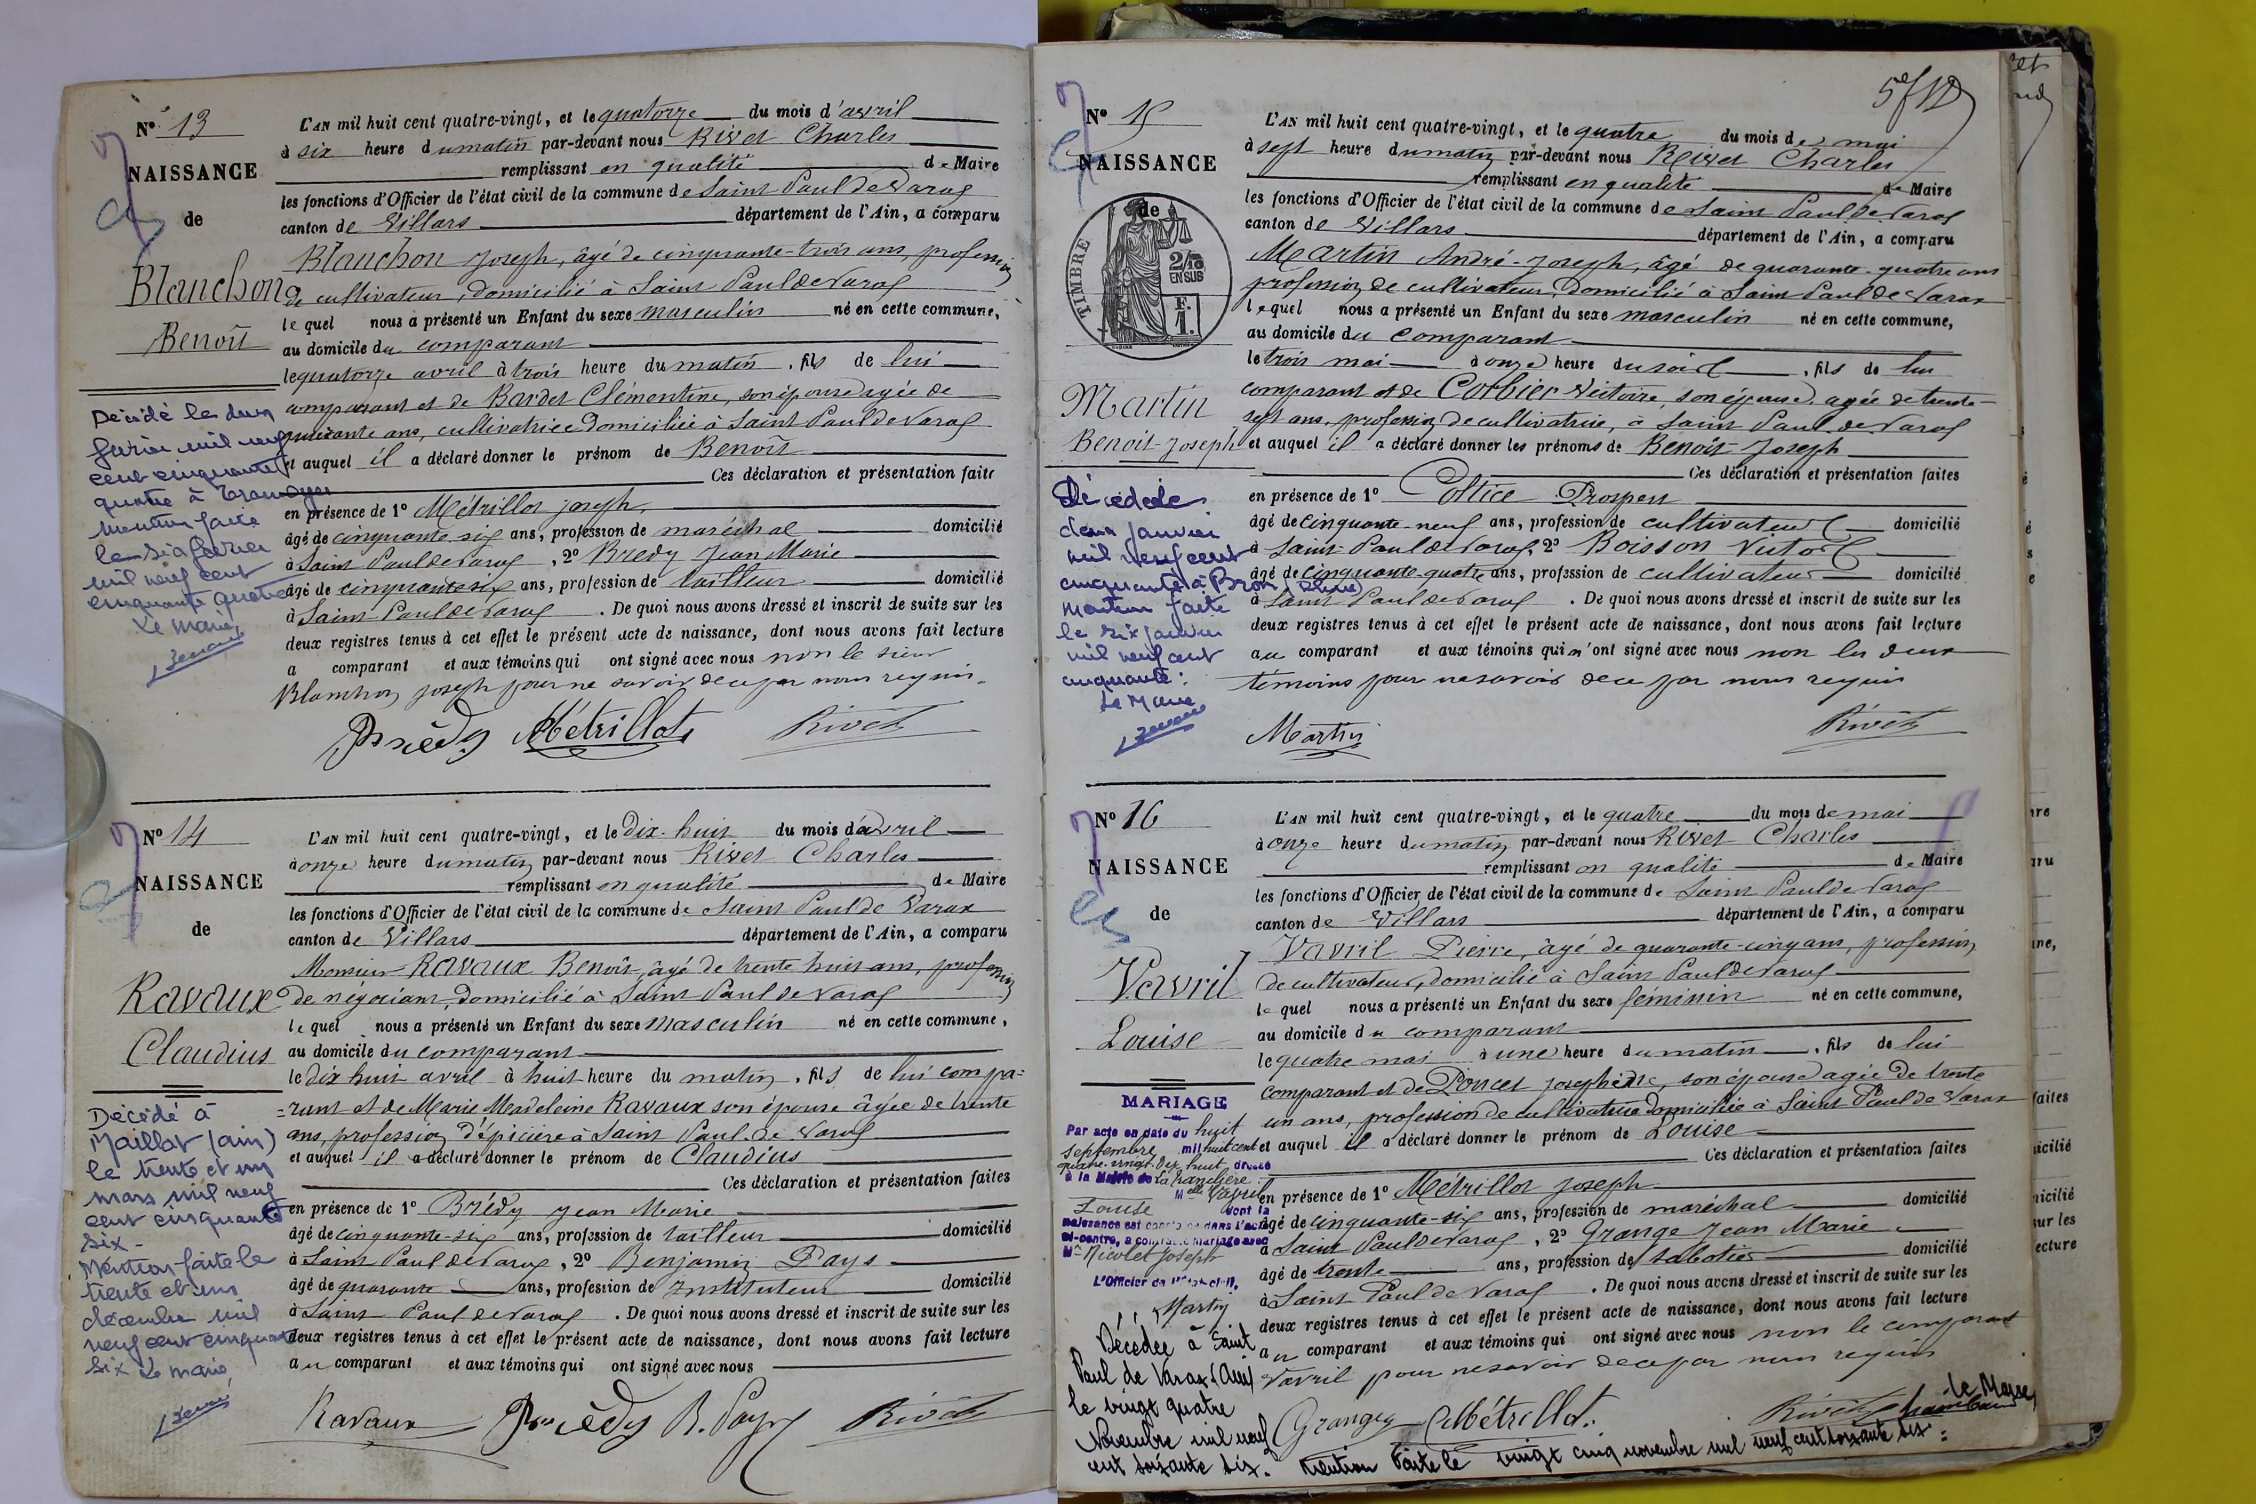 N° 13
NAISSANCE
de
Blanchon
Benoît
L'AN mil huit cent quatre-vingt, et le quatorze du mois d'avril
à six heure du matin par-devant nous Rivet Charles
remplissant en qualité de Maire
les fonctions d'Officier de l'état civil de la commune de Saint Paul de Varax
canton de Villars département de l'Ain, a comparu
Blanchon Joseph, âgé de cinquante-trois ans, profession
de cultivateur, domicilié à Saint Paul de Varax
lequel nous a présenté un Enfant du sexe masculin né en cette commune,
au domicile du comparant
le quatorze avril à trois heure du matin, fils de lui
comparant et de Bardet Clémentine, son épouse agée de
quarante ans, cultivatrice domiciliée à Saint Paul de Varax
et auquel il a déclaré donner le prénom de Benoît
Ces déclaration et présentation faites
en présence de 1° Métrillot Joseph
âgé de cinquante six ans, profession de maréchal domicilié
à Saint Paul de Varax, 2° Bredy Jean Marie
âgé de cinquante six ans, profession de tailleur domicilié
à Saint Paul de Varax. De quoi nous avons dressé et inscrit de suite sur les
deux registres tenus à cet effet le présent acte de naissance, dont nous avons fait lecture
a comparant et aux témoins qui ont signé avec nous non le sieur
Blanchon Joseph pour ne savoir de ce par nous requis.
Brèdy Métrillot Rivet
Décédé le deux
février mil neuf
cent cinquante
quatre à Tramoyes
mention faite
le six février
mil neuf cent
cinquante quatre
Le maire,
N° 14
NAISSANCE
de
Ravaux
Claudius
L'AN mil huit cent quatre-vingt, et le dix-huit du mois d'avril
à onze heure du matin par-devant nous Rivet Charles
remplissant en qualité de Maire
les fonctions d'Officier de l'état civil de la commune de Saint Paul de Varax
canton de Villars département de l'Ain, a comparu
Monsieur Ravaux Benoît, âgé de trente huit ans, profession
de négociant, domicilié à Saint Paul de Varax
lequel nous a présenté un Enfant du sexe masculin né en cette commune,
au domicile du comparant
le dix huit avril à huit heure du matin, fils de lui compa=
=rant et de Marie Madeleine Ravaux son épouse âgée de trente
ans, profession d'épicière à Saint Paul de Varax
et auquel il a déclaré donner le prénom de Claudius
Ces déclaration et présentation faites
en présence de 1° Brédy Jean Marie
âgé de cinquante-six ans, profession de tailleur domicilié
à Saint Paul de Varax, 2° Benjamin Pays
âgé de quarante ans, profession de Instituteur domicilié
à Saint Paul de Varax. De quoi nous avons dressé et inscrit de suite sur les
deux registres tenus à cet effet le présent acte de naissance, dont nous avons fait lecture
au comparant et aux témoins qui ont signé avec nous
Ravaux Brèdy B. Pays Rivet
Décédé à
Maillat (Ain)
le trente et un
mars mil neuf
cent cinquante
six -
Mention faite le
trente et un
décembre mil
neuf cent cinquante
six Le maire,
N° 15
NAISSANCE
de
TIMBRE
2/10
EN SUS
F.
1.
Martin
Benoit-Joseph
L'AN mil huit cent quatre-vingt, et le quatre du mois de mai
à sept heure du matin par-devant nous Rivet Charles
remplissant en qualité de Maire
les fonctions d'Officier de l'état civil de la commune de Saint Paul de Varax
canton de Villars département de l'Ain, a comparu
Martin André-Joseph, âgé de quarante-quatre ans
profession de cultivateur, domicilié à Saint Paul de Varax
lequel nous a présenté un Enfant du sexe masculin né en cette commune,
au domicile du comparant
le trois mai à onze heure du soir, fils de lui
comparant et de Corbier Victoire, son épouse, agée de trente-
sept ans, profession de cultivatrice, à Saint Paul de Varax
et auquel il a déclaré donner les prénoms de Benoît-Joseph
Ces déclaration et présentation faites
en présence de 1° Prosper
âgé de cinquante-neuf ans, profession de cultivateur domicilié
à Saint-Paul de Varax, 2° Boisson Victor
âgé de cinquante-quatre ans, profession de cultivateur domicilié
à Saint Paul de Varax. De quoi nous avons dressé et inscrit de suite sur les
deux registres tenus à cet effet le présent acte de naissance, dont nous avons fait lecture
au comparant et aux témoins qui n'ont signé avec nous non les deux
témoins pour ne savoir de ce par nous requis
Martin Rivet
Décédé le
deux janvier
mil neuf cent
cinquante à Bron (Rhône)
mention faite
le six janvier
mil neuf cent
cinquante.
Le Maire
N° 16
NAISSANCE
de
Vavril
Louise
L'AN mil huit cent quatre-vingt, et le quatre du mois de mai
à onze heure du matin par-devant nous Rivet Charles
remplissant en qualité de Maire
les fonctions d'Officier de l'état civil de la commune de Saint Paul de Varax
canton de Villars département de l'Ain, a comparu
Vavril Pierre, âgé de quarante-cinq ans, profession
de cultivateur, domicilié à Saint Paul de Varax
lequel nous a présenté un Enfant du sexe féminin né en cette commune,
au domicile du comparant
le quatre mai à une heure du matin, fils de lui
comparant et de Poncet Josephine, son épouse agée de trente
un ans, profession de cultivatrice domiciliée à Saint Paul de Varax
et auquel il a déclaré donner le prénom de Louise
Ces déclaration et présentation faites
en présence de 1° Métrillot Joseph
âgé de cinquante-six ans, profession de maréchal domicilié
à Saint Paul de Varax, 2° Grange Jean Marie
âgé de trente ans, profession de sabotier domicilié
à Saint Paul de Varax. De quoi nous avons dressé et inscrit de suite sur les
deux registres tenus à cet effet le présent acte de naissance, dont nous avons fait lecture
au comparant et aux témoins qui ont signé avec nous non le comparant
Vavril pour ne savoir de ce par nous requis
Métrillot Rivet
MARIAGE
Par acte en date du huit
septembre mil huit cent
quatre-vingt-dix huit dressé
à la Mairie de La Tranclière
Melle Vavril
Louise dont la
naissance est constatée dans l'acte
ci-contre, a contracté mariage avec
Mr Nicolet Joseph
L'Officier de l'état civil,
Martin
Décédée à Saint
Paul de Varax (Ain)
le vingt quatre
Novembre mil neuf
cent soixante six. Mention faite le vingt cinq novembre mil neuf cent soixante six.
Le Maire,